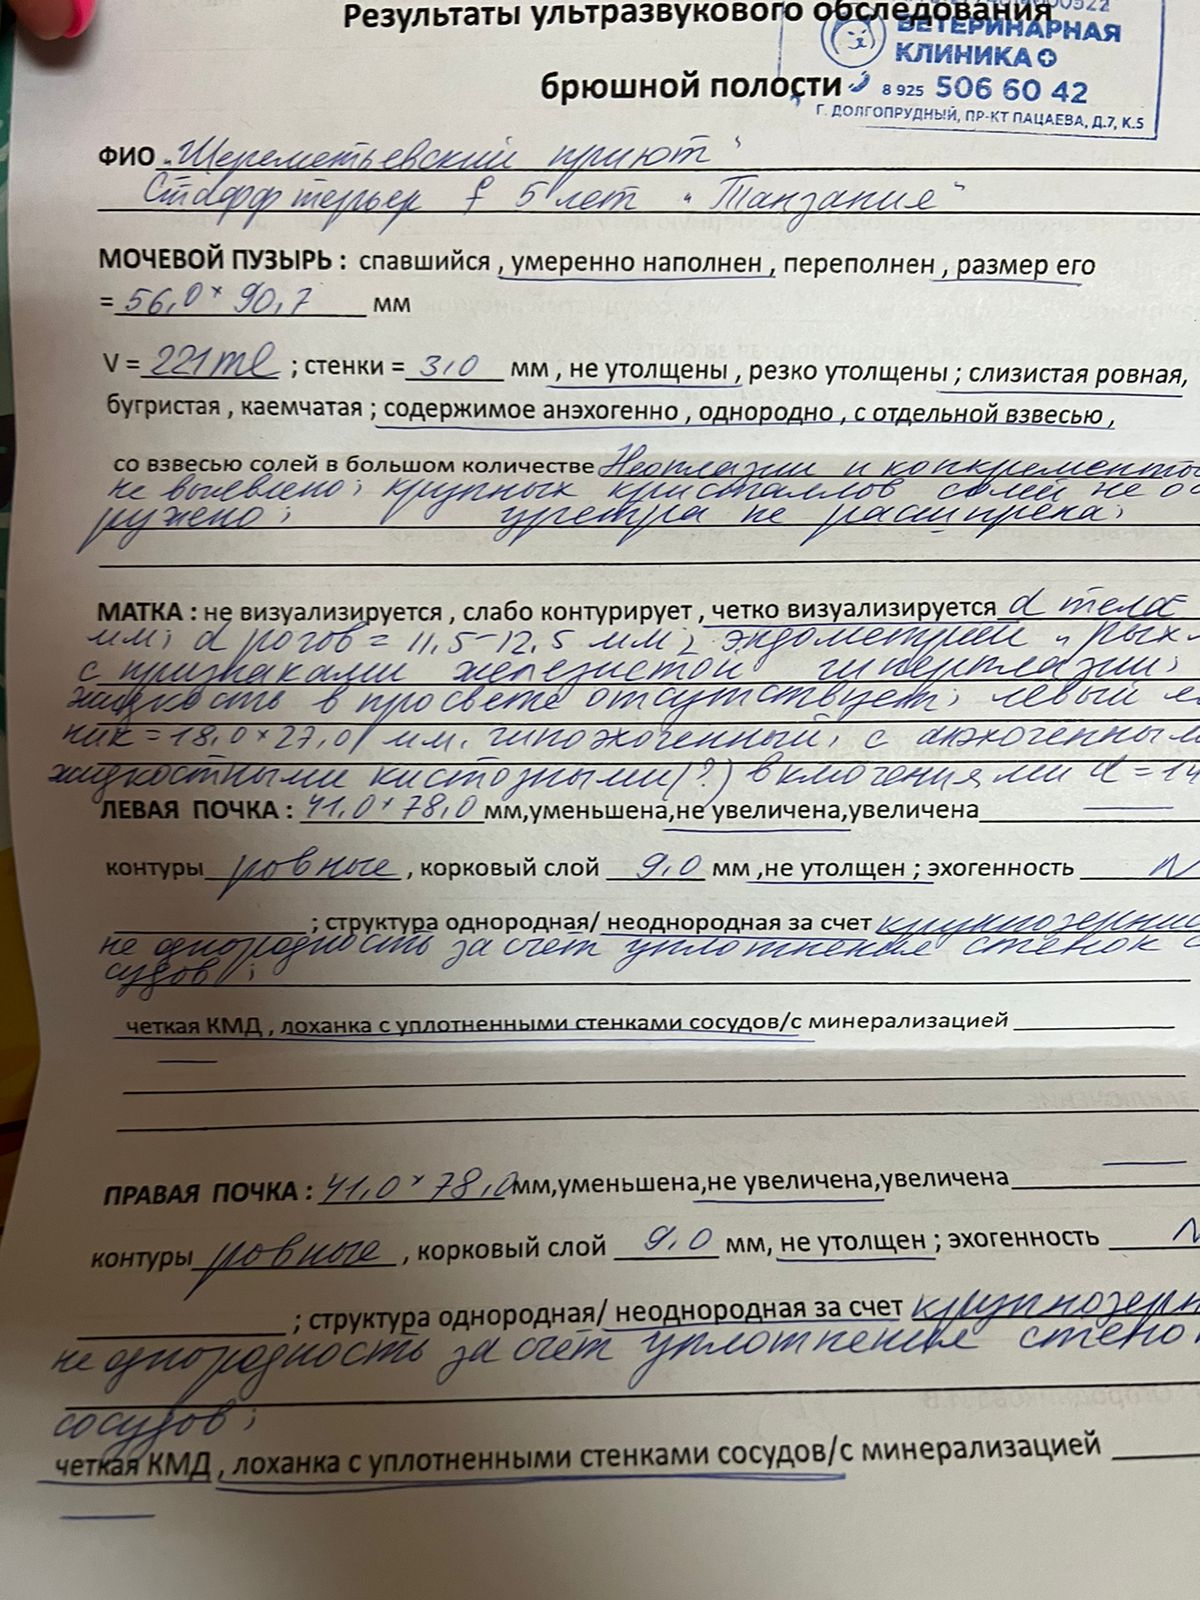 Результаты ультразвукового обследования
00522
ВЕТЕРИНАРНАЯ
КЛИНИКА
брюшной полости
8 925 506 60 42
Г. ДОЛГОПРУДНЫЙ, ПР-КТ ПАЦАЕВА, Д.7, К.5
ФИО "Шереметьевский приют"
Стафф терьер f 5 лет "Танзания"
МОЧЕВОЙ ПУЗЫРЬ : спавшийся , умеренно наполнен , переполнен , размер его
= 56,0 × 90,7 мм
V = 221 ml ; стенки = 3,0 мм , не утолщены , резко утолщены ; слизистая ровная,
бугристая , каемчатая ; содержимое анэхогенно , однородно , с отдельной взвесью ,
со взвесью солей в большом количестве Неоплазии и конкременты
не выявлено; крупных кристаллов солей не об
ружено; уретра не расширена;
МАТКА : не визуализируется , слабо контурирует , четко визуализируется d тела=
мм; d рогов = 11,5-12,5 мм; эндометрий "рых-
с признаками железистой гиперплазии;
жидкость в просвете отсутствует; левый я
ник = 18,0 × 27,0 мм, гипоэхогенный, с анэхогенным
жидкостными кистозными(?) включениями d = 14
ЛЕВАЯ ПОЧКА : 41,0 × 78,0 мм,уменьшена,не увеличена,увеличена
контуры ровные , корковый слой 9,0 мм ,не утолщен ; эхогенность N
; структура однородная/ неоднородная за счет крупнозернис
неоднородность за счет уплотнения стенок с
судов ;
четкая КМД , лоханка с уплотненными стенками сосудов/с минерализацией
ПРАВАЯ ПОЧКА : 41,0 × 78,0 мм,уменьшена,не увеличена,увеличена
контуры ровные , корковый слой 9,0 мм, не утолщен ; эхогенность N
; структура однородная/ неоднородная за счет крупнозерн
неоднородность за счет уплотнения стено
сосудов ;
четкая КМД , лоханка с уплотненными стенками сосудов/с минерализацией